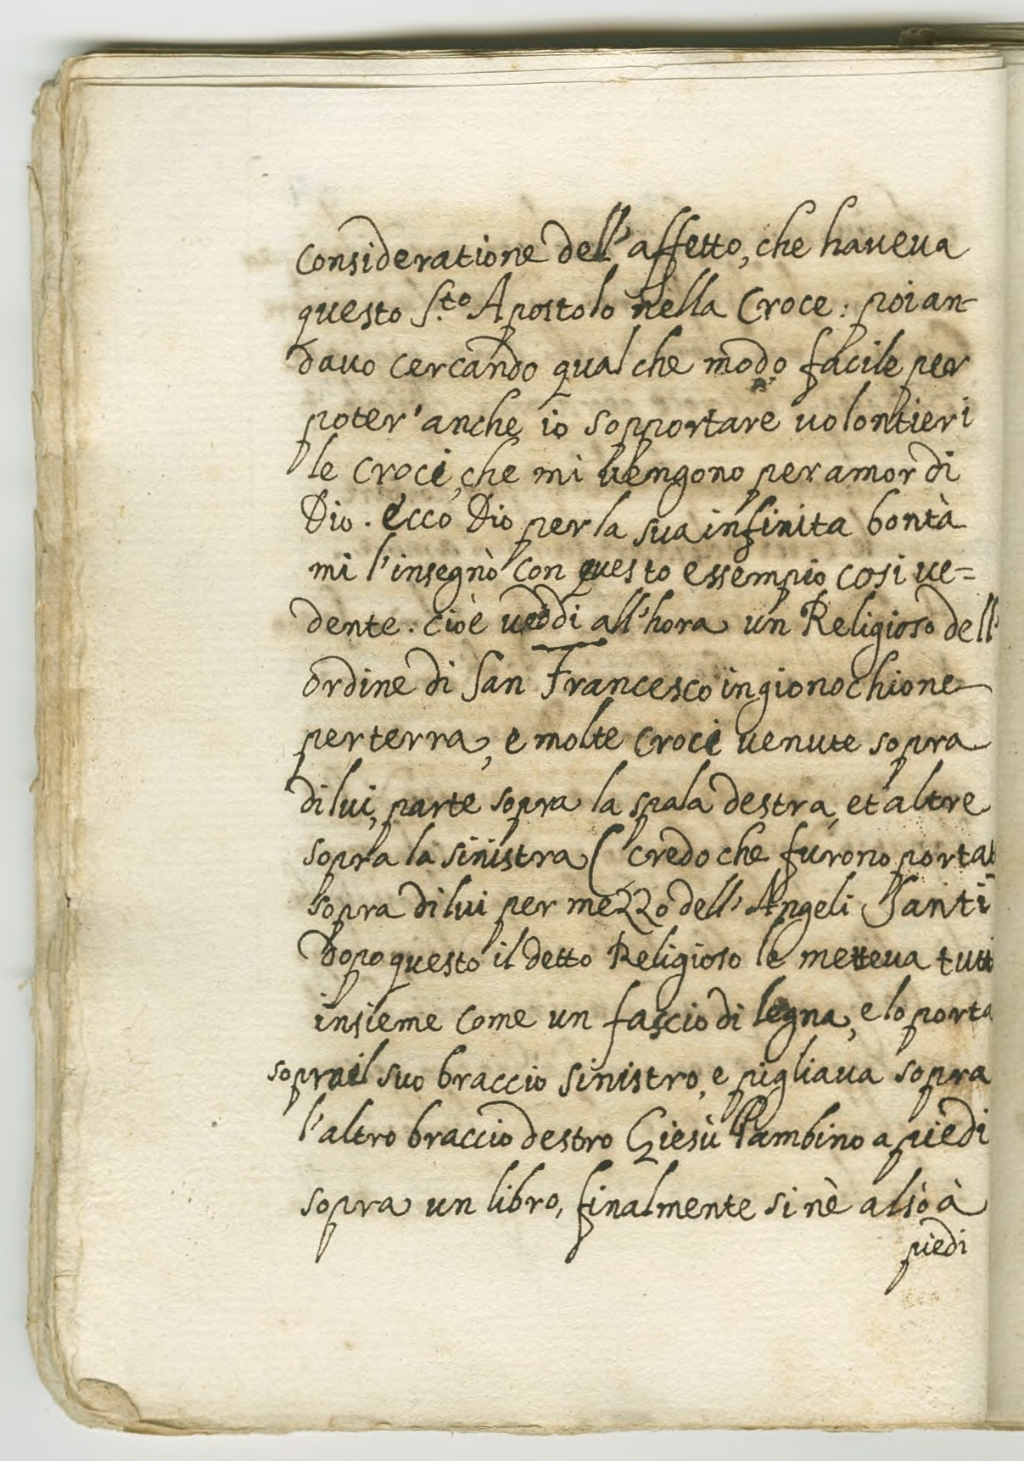 consideratione dell'affetto, che haueua
questo S.to Apostolo nella Croce: poi an-
dauo cercando qualche modo facile per
poter' anche io sopportare uolontieri
le croci, che mi uengono per amor di
Dio. ecco Dio per la sua infinita bontà
mi l'insegnò con questo essempio cosi ue=
dente. cioè ueddi all'hora un Religioso dell'
ordine di San Francesco in gionochione
per terra, e molte croci uenute sopra
di lui, parte sopra la spala destra, et altre
sopra la sinistra ( credo che furono portat
sopra di lui per mezzo dell'Angeli Santi
Dopo questo il detto Religioso le metteua tutti
insieme come un fascio di legna, e lo porta
sopra il suo braccio sinistro, e pigliaua sopra
l'altro braccio destro Giesù Bambino a piedi
sopra un libro, finalmente si nè alsò à
piedi